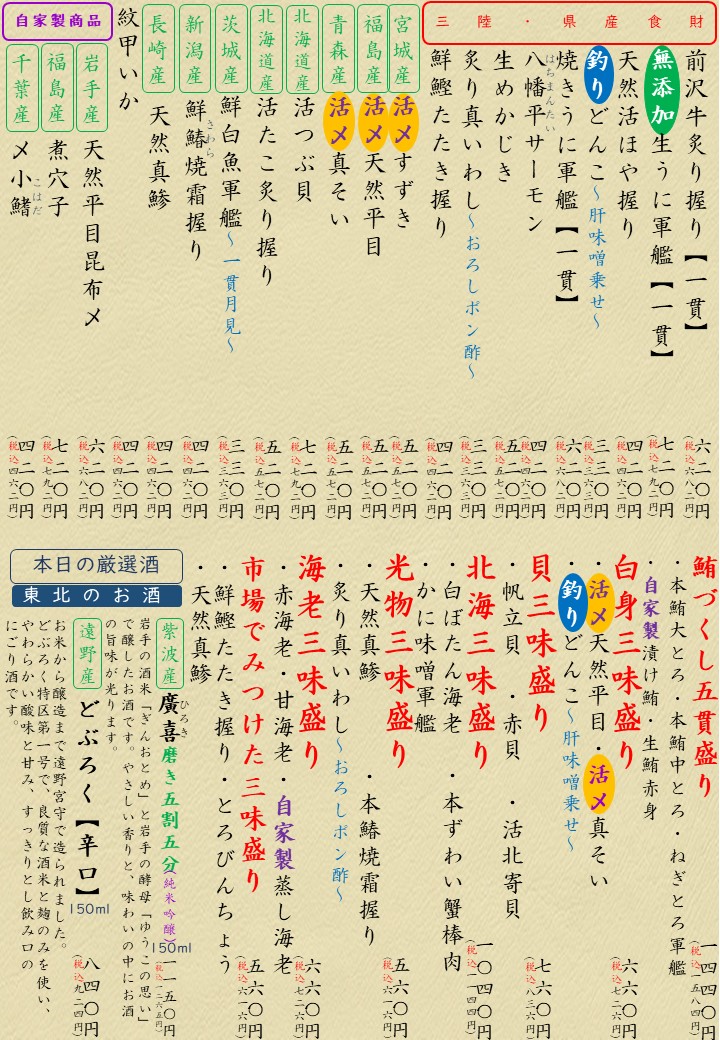 三陸・県産食財
前沢牛炙り握り【一貫】 六二〇円
(税込六八二円)
無添加生うに軍艦【一貫】 七二〇円
(税込七九二円)
天然活ほや握り 四二〇円
(税込四六二円)
釣りどんこ～肝味噌乗せ～ 三三〇円
(税込三六三円)
焼きうに軍艦【一貫】 六二〇円
(税込六八二円)
八幡平サーモン 四二〇円
はちまんたい
(税込四六二円)
生めかじき 五二〇円
(税込五七二円)
炙り真いわし～おろしポン酢～ 三三〇円
(税込三六三円)
鮮鰹たたき握り 四二〇円
(税込四六二円)
宮城産 活〆すずき 五二〇円
(税込五七二円)
福島産 活〆天然平目 五二〇円
(税込五七二円)
青森産 活〆真そい 五二〇円
(税込五七二円)
北海道産 活つぶ貝 七二〇円
(税込七九二円)
北海道産 活たこ炙り握り 五二〇円
(税込五七二円)
茨城産 鮮白魚軍艦～一貫月見～ 三三〇円
(税込三六三円)
新潟産 鮮鰆焼霜握り 四二〇円
さわら
(税込四六二円)
長崎産 天然真鯵 四二〇円
(税込四六二円)
紋甲いか 四二〇円
(税込四六二円)
自家製商品
岩手産 天然平目昆布〆 六二〇円
(税込六八二円)
福島産 煮穴子 七二〇円
(税込七九二円)
千葉産 〆小鰭 四二〇円
こはだ
(税込四六二円)
鮪づくし五貫盛り 一四四〇円
(税込一五八四円)
・本鮪大とろ・本鮪中とろ・ねぎとろ軍艦
・自家製漬け鮪・生鮪赤身
白身三味盛り 六六〇円
(税込七二六円)
・活〆天然平目・活〆真そい
・釣りどんこ～肝味噌乗せ～
貝三味盛り 七六〇円
(税込八三六円)
・帆立貝・赤貝・活北寄貝
北海三味盛り 一〇四〇円
(税込一一四四円)
・白ぼたん海老・本ずわい蟹棒肉
・かに味噌軍艦
光物三味盛り 五六〇円
(税込六一六円)
・天然真鯵・本鰆焼霜握り
・炙り真いわし～おろしポン酢～
海老三味盛り 六六〇円
(税込七二六円)
・赤海老・甘海老・自家製蒸し海老
市場でみつけた三味盛り 五六〇円
(税込六一六円)
・鮮鰹たたき握り・とろびんちょう
・天然真鯵
本日の厳選酒
東北のお酒
紫波産 廣喜磨き五割五分(純米吟醸) 150ml 一一五〇円
ひろき
(税込一二六五円)
岩手の酒米「ぎんおとめ」と岩手の酵母「ゆうこの思い」
で醸したお酒です。やさしい香りと、味わいの中にお酒
の旨味が光ります。
遠野産 どぶろく【辛口】 150ml 八四〇円
(税込九二四円)
お米から醸造まで遠野宮守で造られました。
どぶろく特区第一号で、良質な酒米と麹のみを使い、
やわらかい酸味と甘み、すっきりとし飲み口の
にごり酒です。